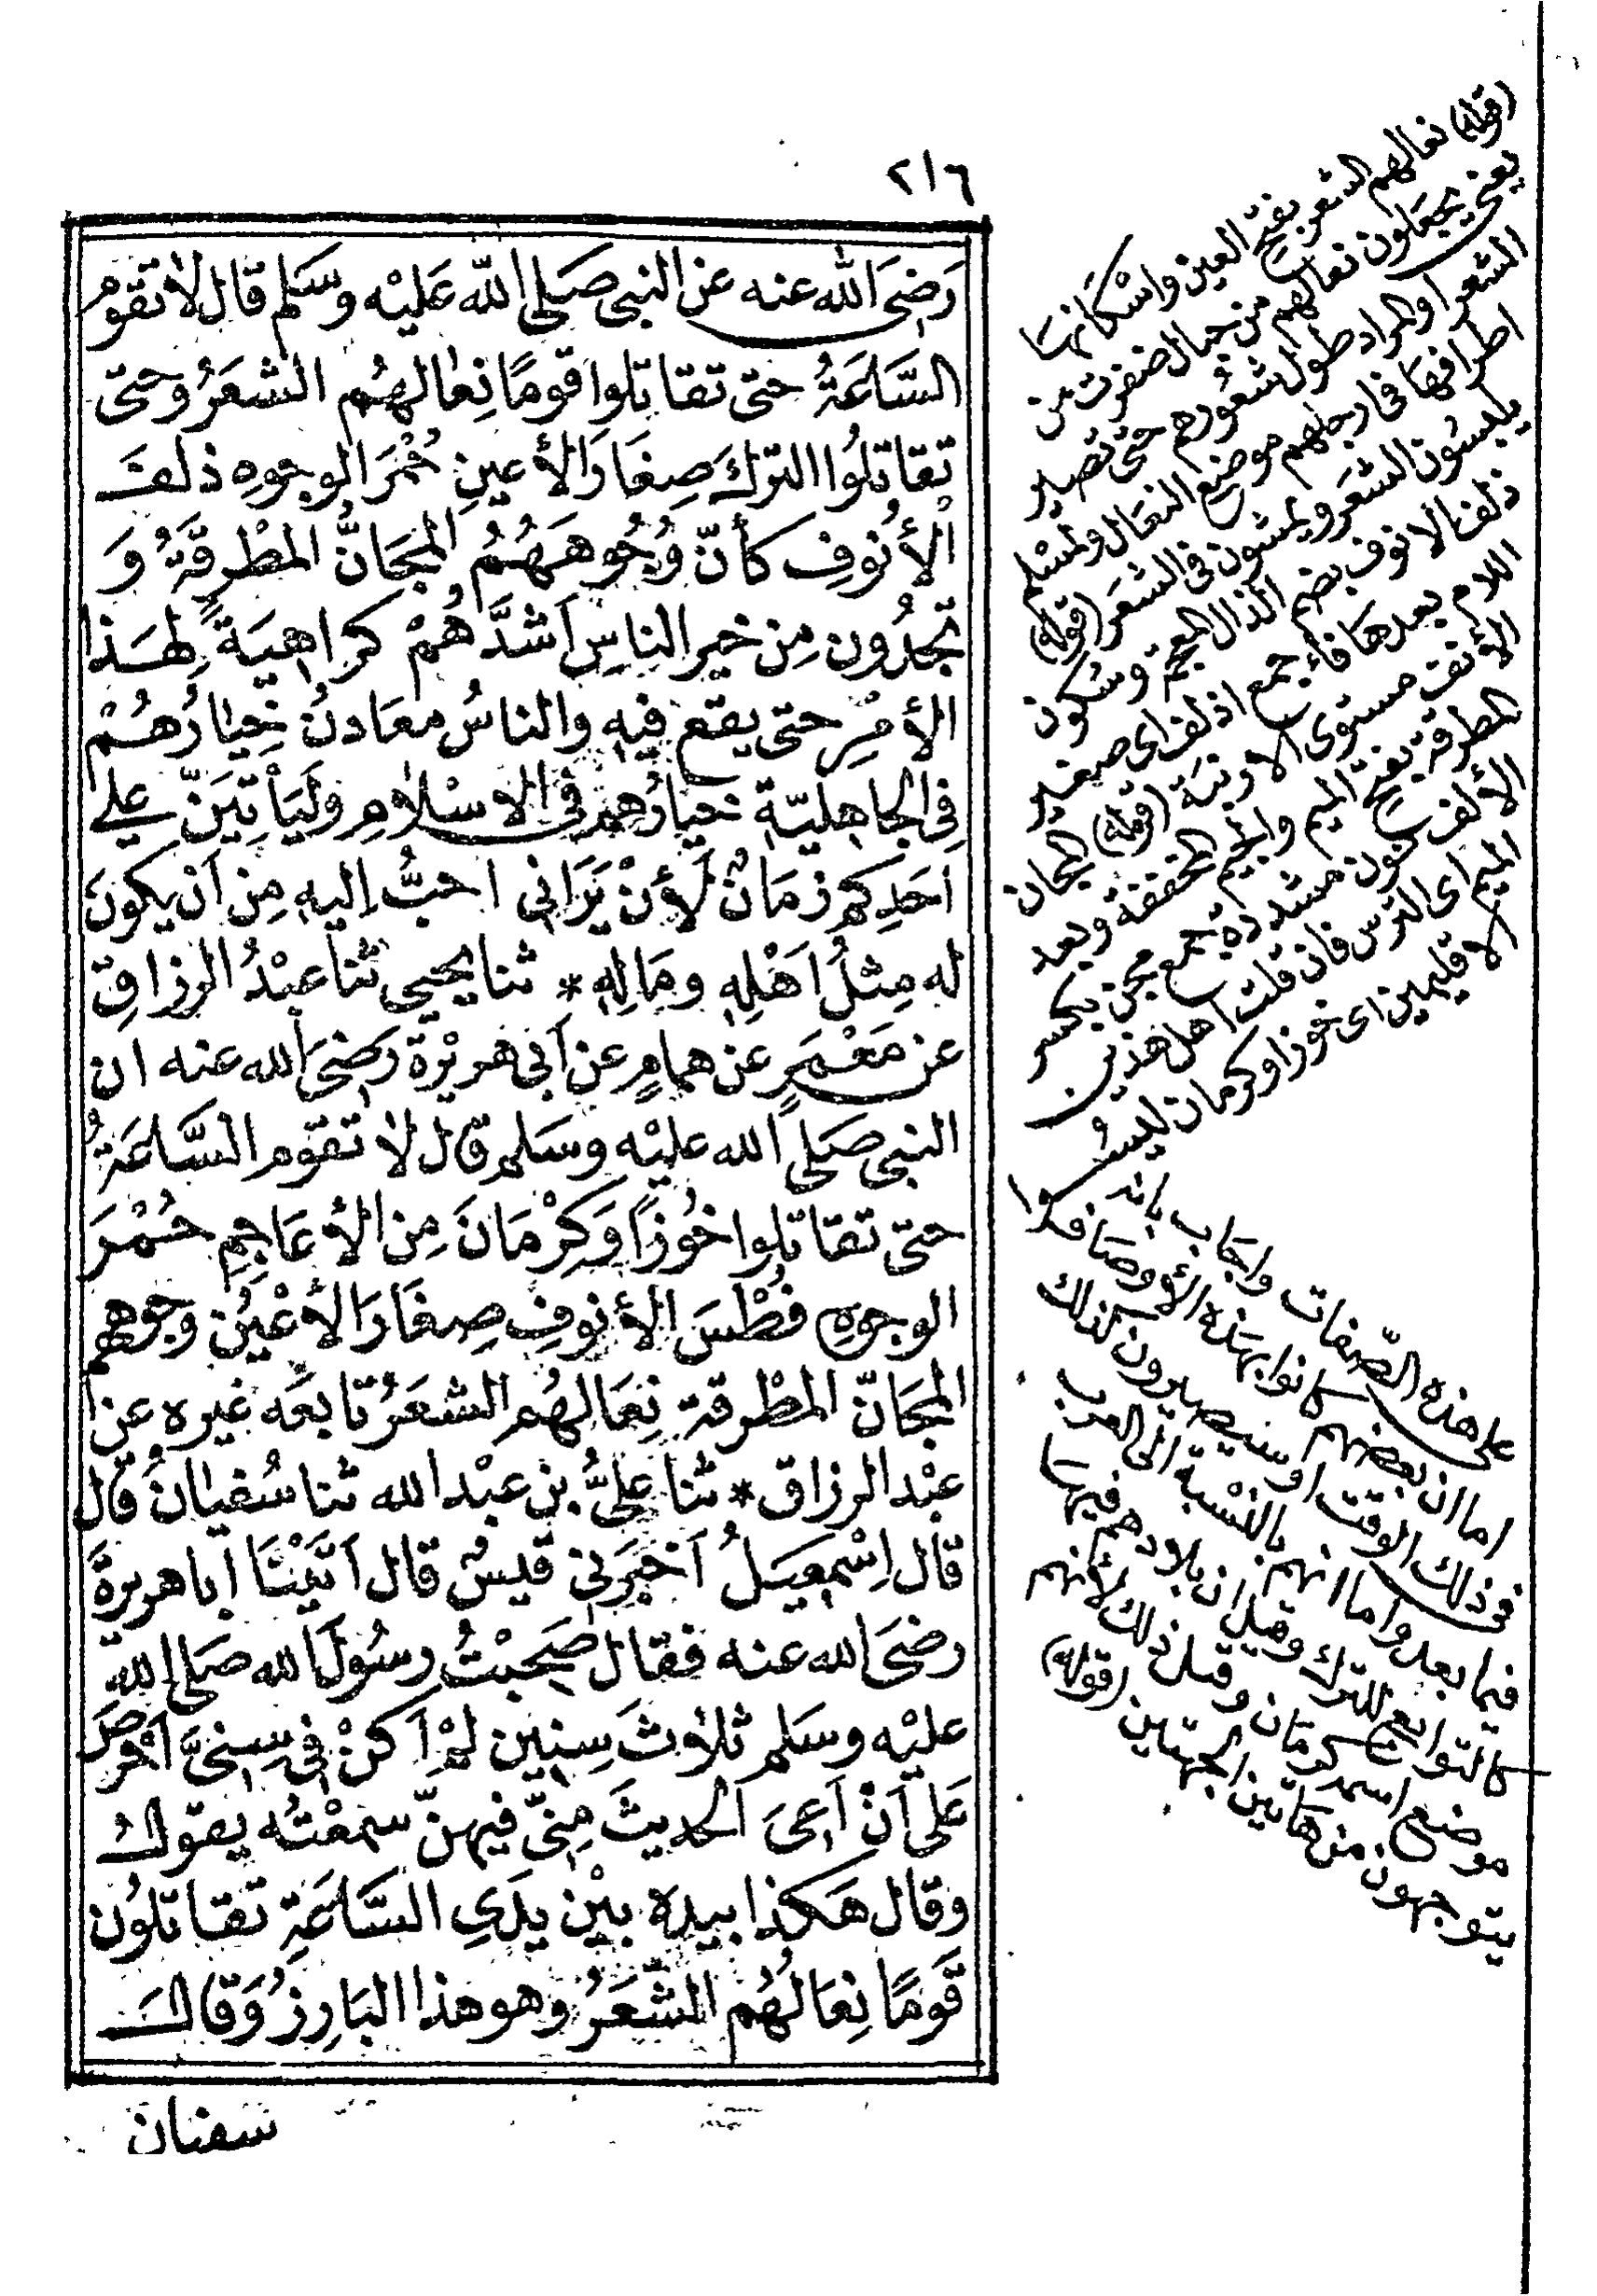 ٢١٦
رَضِىَ الله عنه عن النبى صَلى اللّه عَليْه وسَلم قال لا تقومُ
السَّاعَةُ حتى تقاتلوا قومًا نِعالهُم الشعَرُ وحتى
تقاتلُوا التركَ صِغَارَ الأعينِ حُمْرَ الوجوهِ ذلفَ
الأنُوفِ كأنّ وُجُوهَهُمُ المجَانُّ المطْرقَةُ وَ
تجدُون مِن خير الناسِ اَشدَّهُمْ كراهِيَةً لهَذا
الأمْرِ حتى يقع فيهِ والناسُ معَادنُ خِيارُهُمْ
فى الجاهِليّةِ خِيارُهم فى الاسْلامِ ولَيَأتِيَنّ على
اَحَدِكم زمَانٌ لَأنْ يَرَانى احَبُّ اليهِ مِن اَن يكونَ
له مِثلُ اَهْلِهِ ومَالِهِ * ثنا يحيى ثنا عبْدُ الرزاقِ
عن مَعْمَرٍ عن همامٍ عن اَبى هريْرة رَضىَ الله عنه ان
النبى صَلى الله عليْه وسَلم قال لا تقوم السَّاعَةُ
حتى تقاتلوا خُوزًا وَكِرْمَانَ مِن الأعَاجِمِ حُمْرَ
الوجوهِ فُطْسَ الأنوفِ صِغَارَ الأعْيُنِ وجوههم
المجَانّ المطْرقة نِعَالهُم الشعَرُ تابعَه غيره عن
عبْد الرزاق * ثنا علىُّ بن عبْد الله ثنا سُفيانُ قال
قال اِسْمعِيلُ اَخبرَنى قيسٌ قال اَتيْنَا اَبا هريرةَ
رضىَ الله عنه فقال صَحِبْتُ رسُولَ الله صَلى اللّه
عليْه وسَلم ثلاثَ سِنِين لمْ اَكنْ فى سِنِىَّ اَحْرصَ
عَلى اَنْ اَعِىَ الحديثَ مِنِّى فيهنّ سمعْتُه يقول
وقال هَكذا بيدهِ بيْن يدَىِ السَّاعَةِ تقاتلُون
قَومًا نِعَالُهُم الشّعَرُ وهو هذا البَارِزُ وَقالَ
سفيان
(قوله) نعالهم الشعر بفتح العين واسْكانها
يعنى يجعَلون نعالهم من حبال ضفرت من
الشعر او المراد طول شعُورهم حتى تصير
اطرافها فى ارجلهم موضع النعال ولمسْلم
يلبسُون الشعَر ويمشون فى الشعَر (قوله)
ذلف الانوف بضم الذال المعجمة وسُكون
اللام بعدها فاء جمع اذلف اى صغير
الأنف مستوى الارنبَة (قوله) المجان
المطرقة بفتح الميم والجيم المخففة وبعد
الألف نون مشددة جمع مجن بكسر
الميم اى الترس فان قلت اهل هذين
الاقليمين اى خوز او كرمان ليسُوا
على هذه الصّفات واجَاب بانه
اما ان بعضهم كانوا بهَذه الأوصَاف
فى ذلك الوقت او سيصيرون كذلك
فيما بعد واما انهم بالنسْبة الى العرب
كالتوابع للترك وقيل ان بلادهم فيهَا
موضع اسمه كرمَان وقيل ذلك لأنهم
يتوجهون من هَاتين الجهتين (قوله)